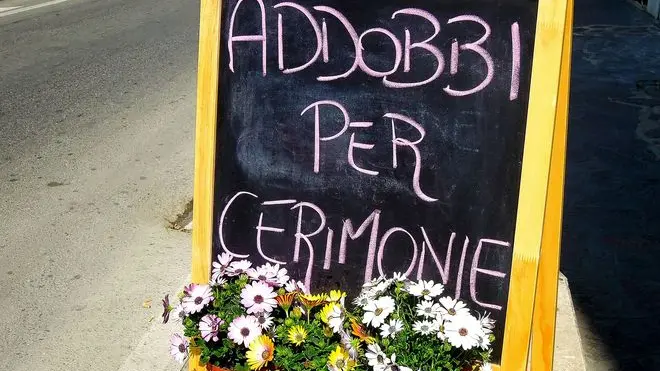 ADDOBBI
PER
CERIMONIE